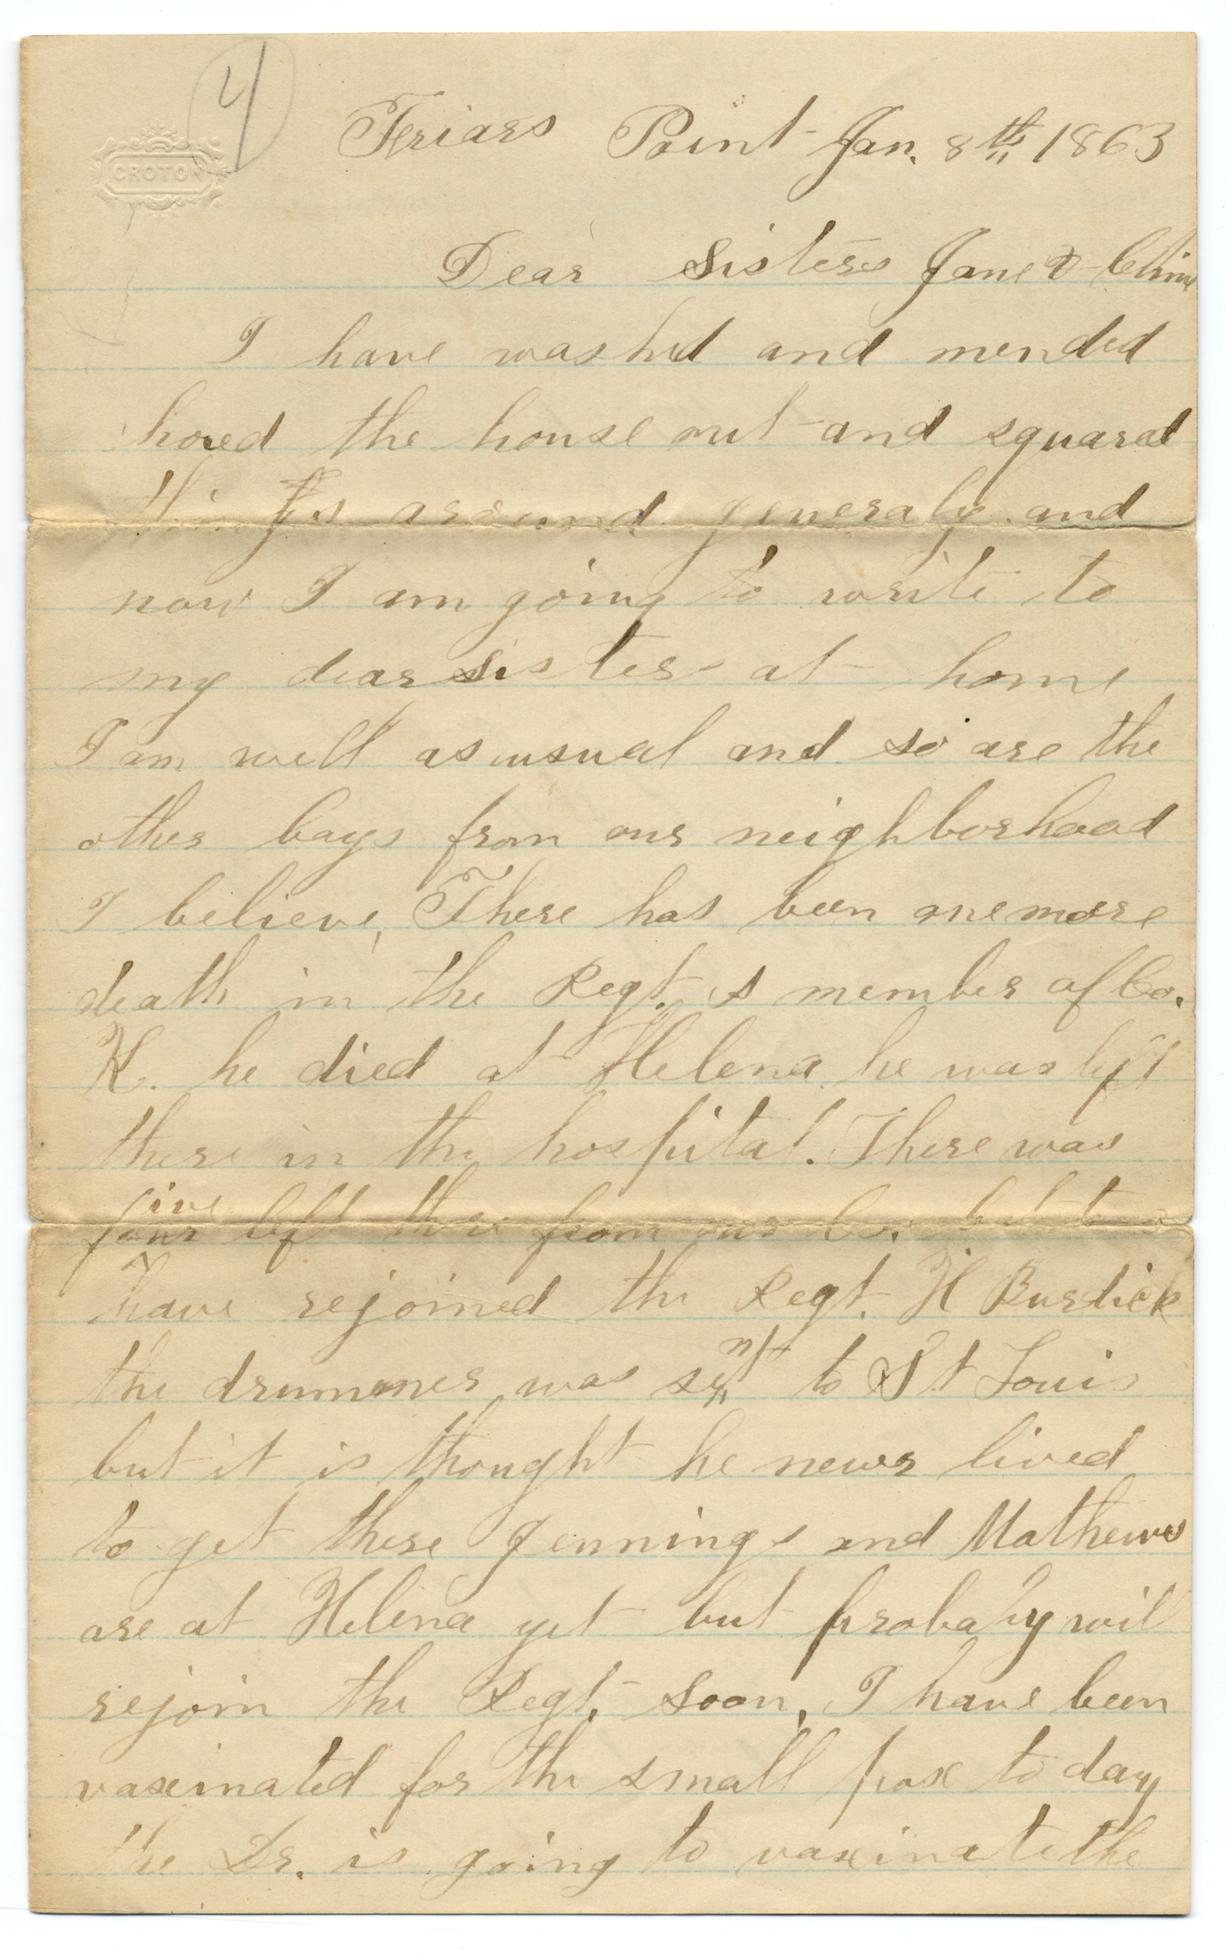 4
CROTON
Friars Point Jan. 8th 1863
Dear Sisters Jane &
I have washed and mended
hoed the house out and squared
things around generaly and
now I am going to write to
my dear sister at home
I am well as usual and so are the
other boys from our neighborhood
I believe, There has been one more
death in the Regt. a member of Co.
K. he died at Helena he was left
there in the hospital. There was
five left there from our Co. but
have rejoined the Regt. H Burdick
the drummer was sent to St Louis
but it is thought he never lived
to get there Jennings and Mathews
are at Helena yet but probaly will
rejoin the Regt. soon, I have been
vaxinated for the small pox to day
the Dr. is going to vaxinate the